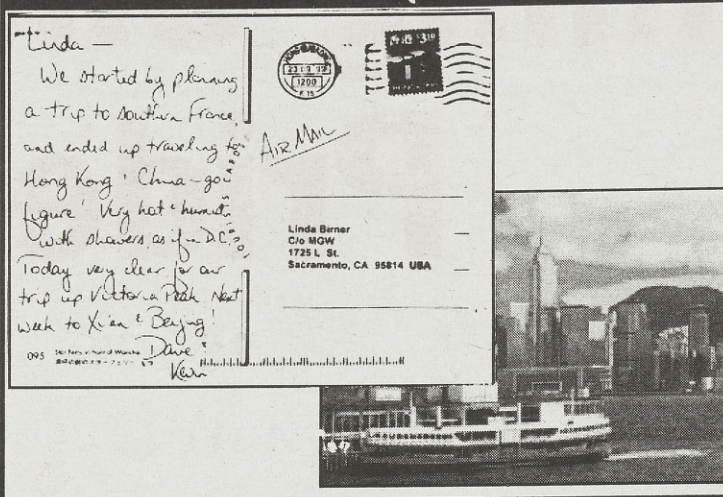 Linda —
We started by planning
a trip to southern France,
and ended up traveling to
Hong Kong & China - go
figure! Very hot & humid
with showers, as if in D.C.
Today very clear for our
trip up Victoria Peak. Next
week to Xian & Beijing!
Dave &
Kevin
095
AIR MAIL
1200
Linda Birner
C/o MGW
1725 L St.
Sacramento, CA 95814 USA